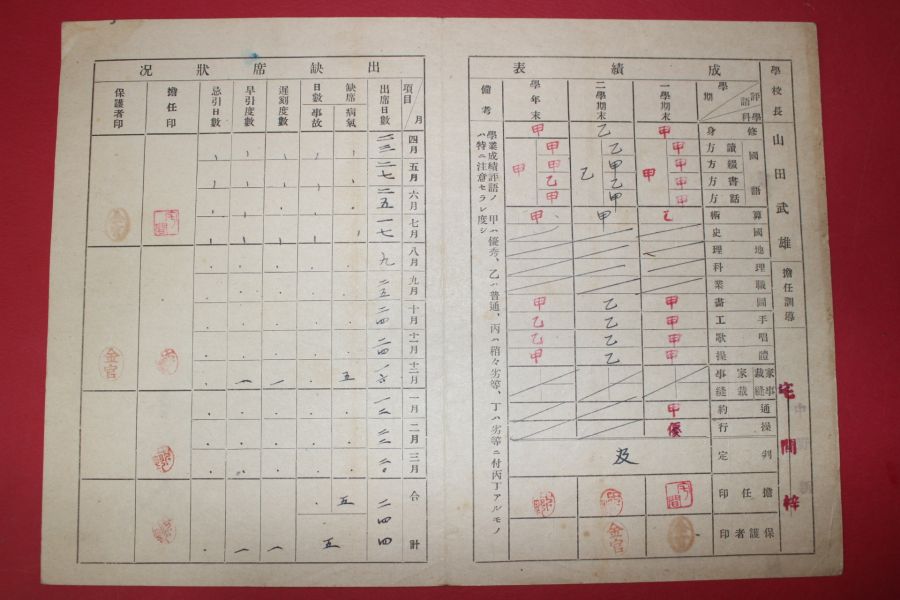 學校長 山田武雄 擔任訓導 宅間梓
成績表
評語 學科 學期
一學期末
二學期末
學年末
備考
修身 甲 乙 甲
國語 甲 乙 甲
讀方 甲 乙 甲
綴方 甲 甲 甲
書方 甲 乙 乙
話方 甲 甲 甲
算術 乙 甲 甲
國史
地理
理科
職業
圖畫 甲 乙 甲
手工 甲 乙 乙
唱歌 甲 乙 乙
體操 甲 乙 甲
家事 裁縫
家事裁縫
通約 甲
操行 優
判定 及
擔任印
保護者印 金官
學業成績評語ノ 甲ハ優秀、乙ハ普通、丙ハ稍々劣等、丁ハ劣等ニ付丙丁アルモノ
ハ特ニ注意セラレ度シ
出缺席狀況
項目 月 四月 五月 六月 七月 八月 九月 十月 十一月 十二月 一月 二月 三月 合計
出席日數 二三 二七 二五 一七 九 二五 二四 二四 一六 一二 二二 二〇 二四四
缺席日數 病氣 五 五
事故 五
遲刻度數 一 一
早引度數 一 一
忌引日數
擔任印
保護者印 金官